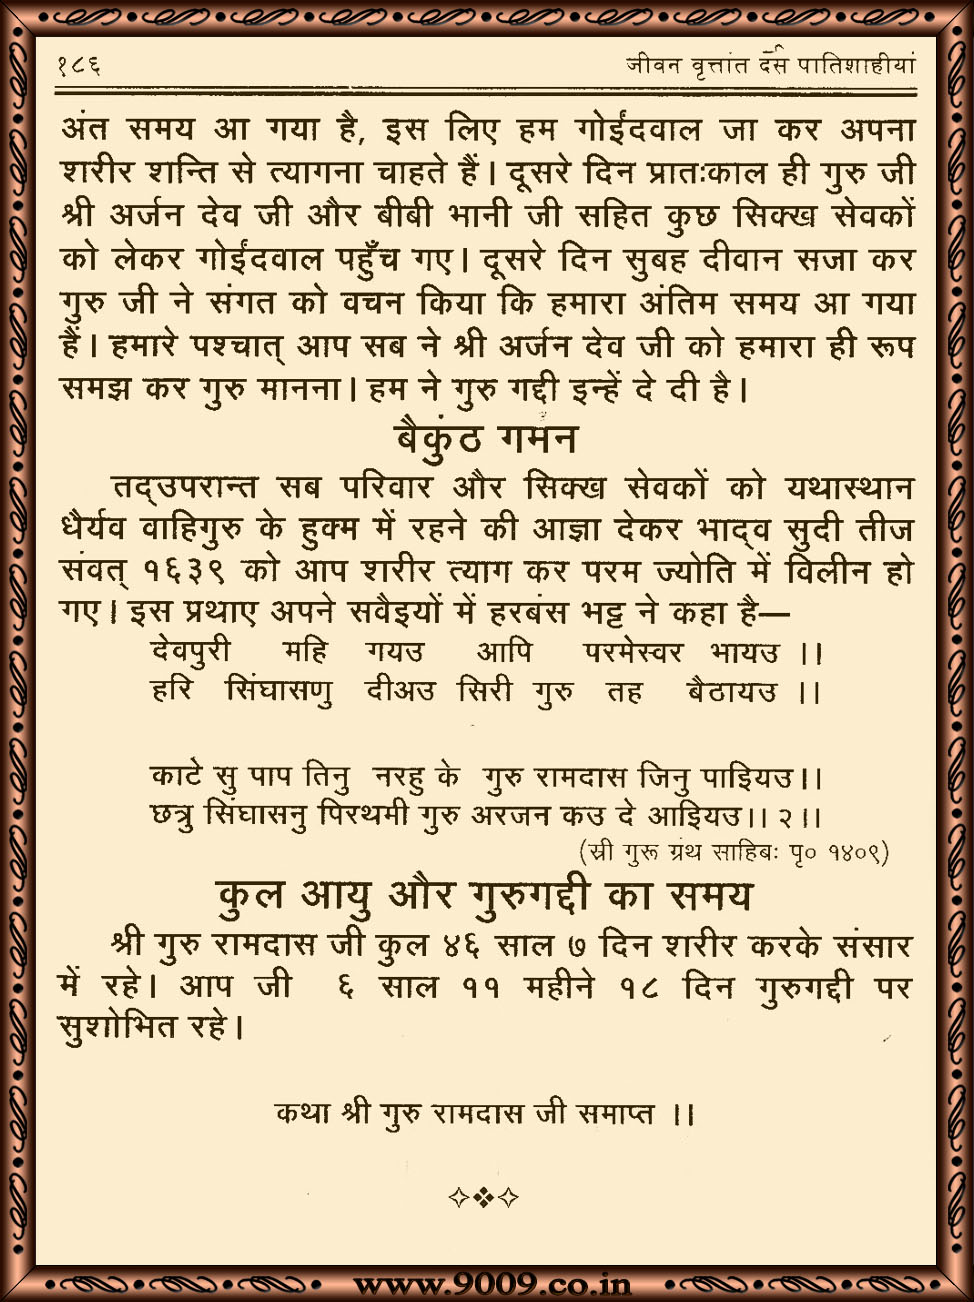 १८६
जीवन वृत्तांत दस पातिशाहीयां
अंत समय आ गया है, इस लिए हम गोईंदवाल जा कर अपना
शरीर शन्ति से त्यागना चाहते हैं। दूसरे दिन प्रातःकाल ही गुरु जी
श्री अर्जन देव जी और बीबी भानी जी सहित कुछ सिक्ख सेवकों
को लेकर गोईंदवाल पहुँच गए। दूसरे दिन सुबह दीवान सजा कर
गुरु जी ने संगत को वचन किया कि हमारा अंतिम समय आ गया
हैं। हमारे पश्चात् आप सब ने श्री अर्जन देव जी को हमारा ही रूप
समझ कर गुरु मानना। हम ने गुरु गद्दी इन्हें दे दी है।
बैकुंठ गमन
तद्उपरान्त सब परिवार और सिक्ख सेवकों को यथास्थान
धैर्यव वाहिगुरु के हुक्म में रहने की आज्ञा देकर भाद्व सुदी तीज
संवत् १६३९ को आप शरीर त्याग कर परम ज्योति में विलीन हो
गए। इस प्रथाए अपने सवैइयों में हरबंस भट्ट ने कहा है—
देवपुरी महि गयउ आपि परमेस्वर भायउ ।।
हरि सिंघासणु दीअउ सिरी गुरु तह बैठायउ ।।
काटे सु पाप तिनु नरहु के गुरु रामदास जिनु पाइियउ।।
छत्रु सिंघासनु पिरथमी गुरु अरजन कउ दे आइियउ।। २।।
(स्री गुरू ग्रंथ साहिबः पृ० १४०९)
कुल आयु और गुरुगद्दी का समय
श्री गुरु रामदास जी कुल ४६ साल ७ दिन शरीर करके संसार
में रहे। आप जी ६ साल ११ महीने १८ दिन गुरुगद्दी पर
सुशोभित रहे।
कथा श्री गुरु रामदास जी समाप्त ।।
www.9009.co.in